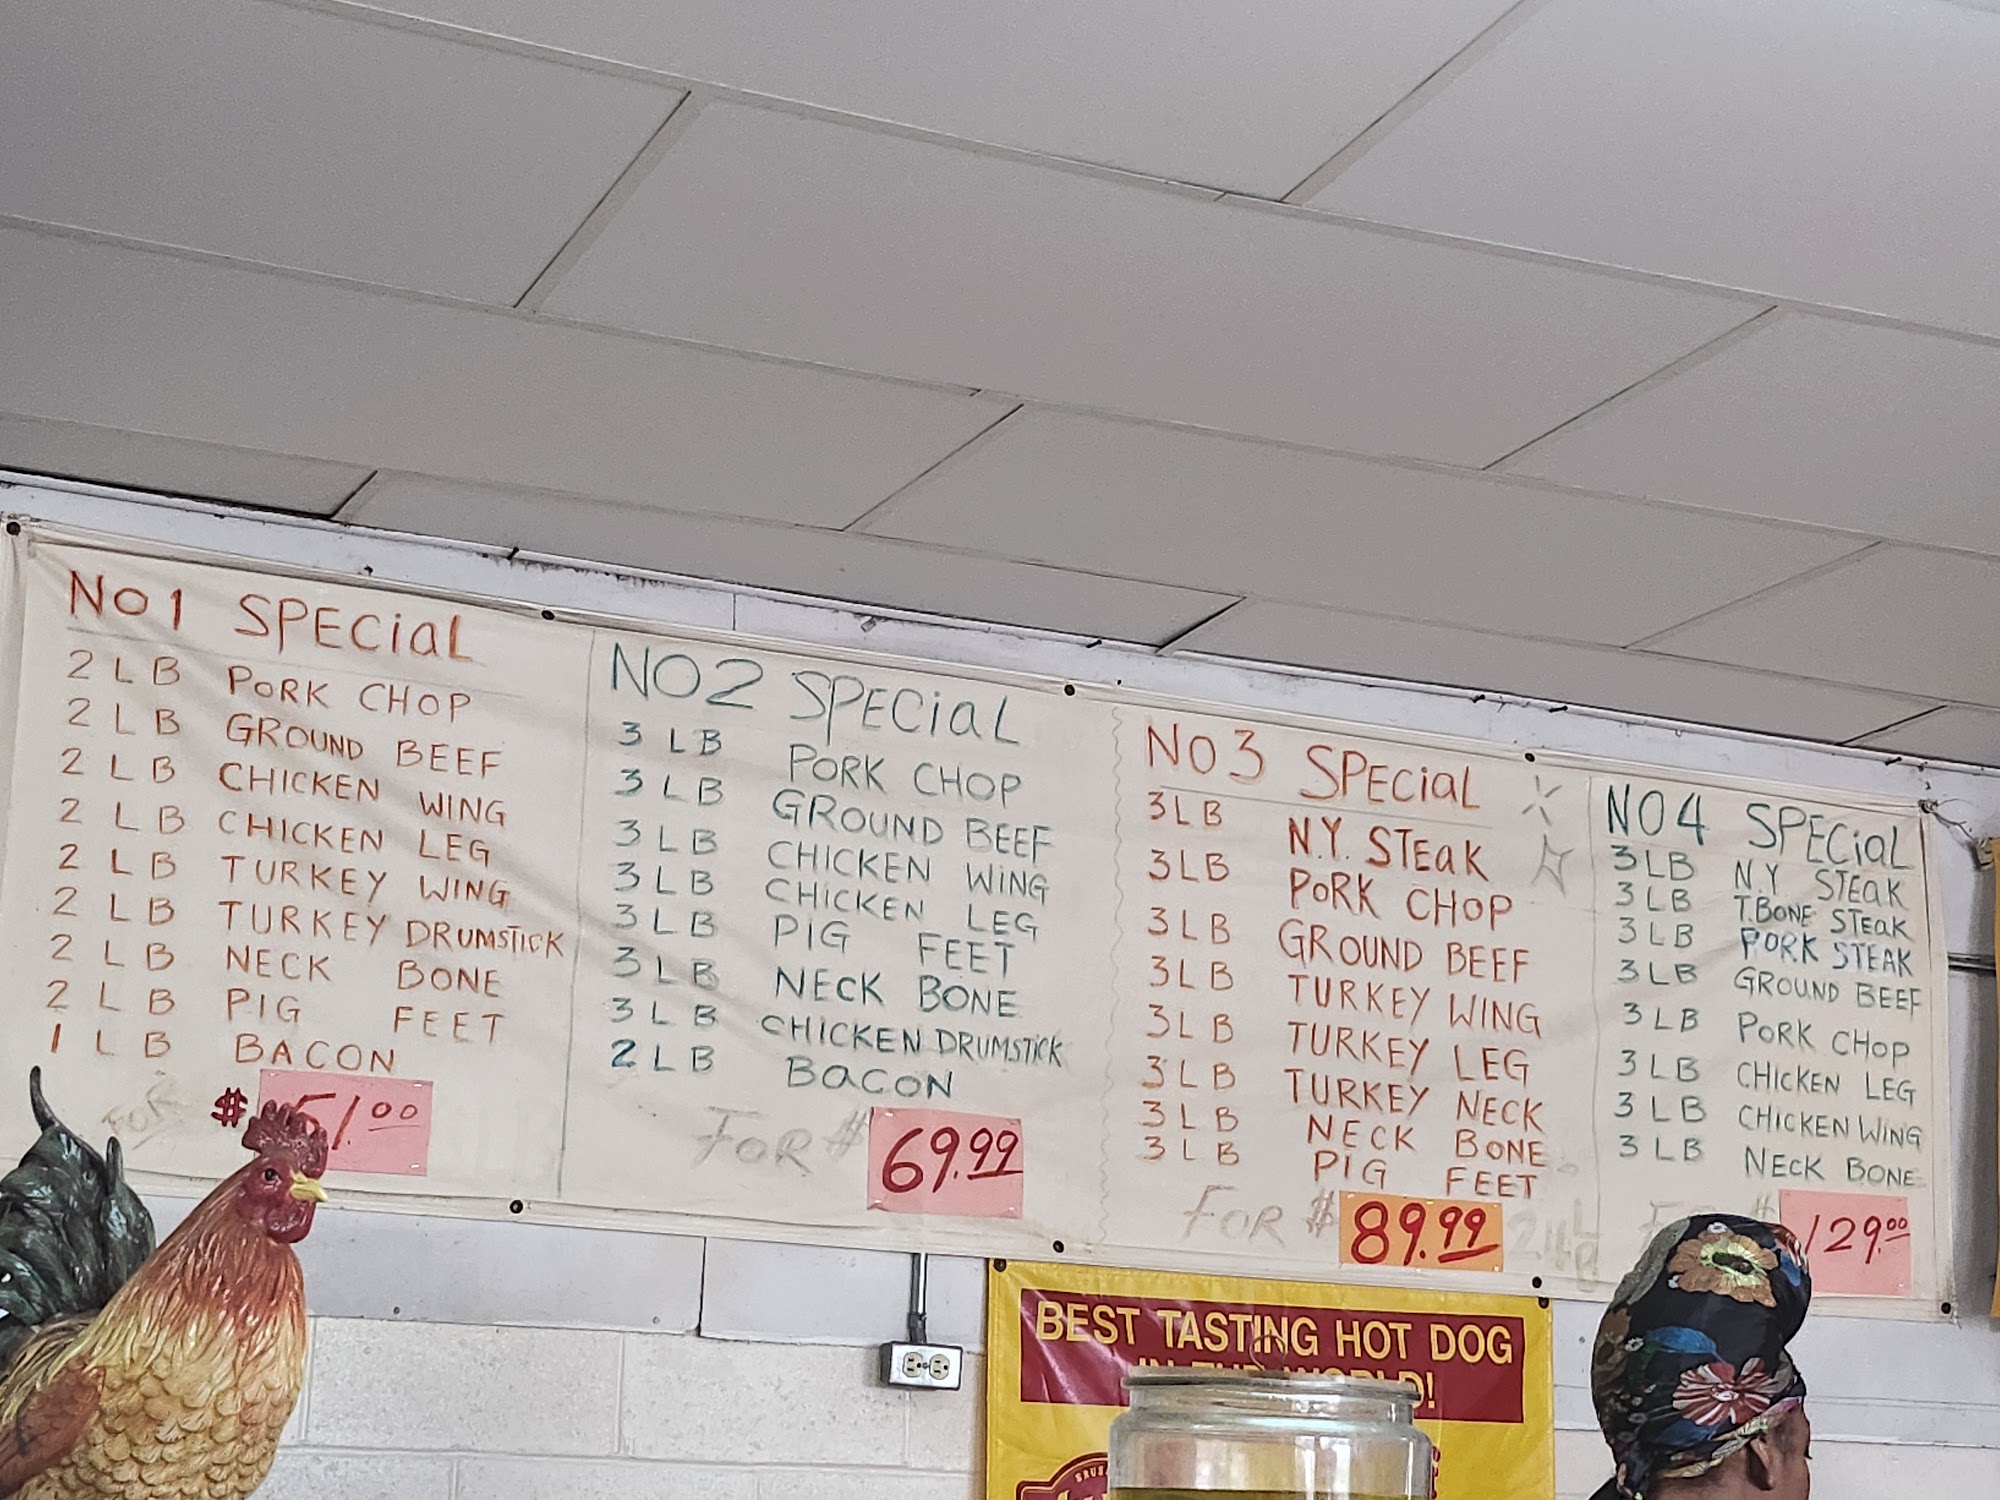 No 1 SPECiaL
2 LB PORK CHOP
2 LB GROUND BEEF
2 LB CHICKEN WING
2 LB CHICKEN LEG
2 LB TURKEY WING
2 LB TURKEY DRUMSTICK
2 LB NECK BONE
2 LB PIG FEET
1 LB BACON
FOR $ 51.00
NO2 SPECiaL
3 LB PORK CHOP
3 LB GROUND BEEF
3 LB CHICKEN WING
3 LB CHICKEN LEG
3 LB PIG FEET
3 LB NECK BONE
3 LB CHICKEN DRUMSTICK
2 LB BaCON
FOR # 69.99
NO 3 SPECiaL
3 LB N.Y. STEaK
3 LB PORK CHOP
3 LB GROUND BEEF
3 LB TURKEY WING
3 LB TURKEY LEG
3 LB TURKEY NECK
3 LB NECK BONE
3 LB PIG FEET
FOR # 89.99
NO4 SPECiaL
3 LB N.Y STEAK
3 LB T.BONE STEAK
3 LB PORK STEAK
3 LB GROUND BEEF
3 LB PORK CHOP
3 LB CHICKEN LEG
3 LB CHICKEN WING
3 LB NECK BONE
129.00
BEST TASTING HOT DOG
IN THE WORLD!